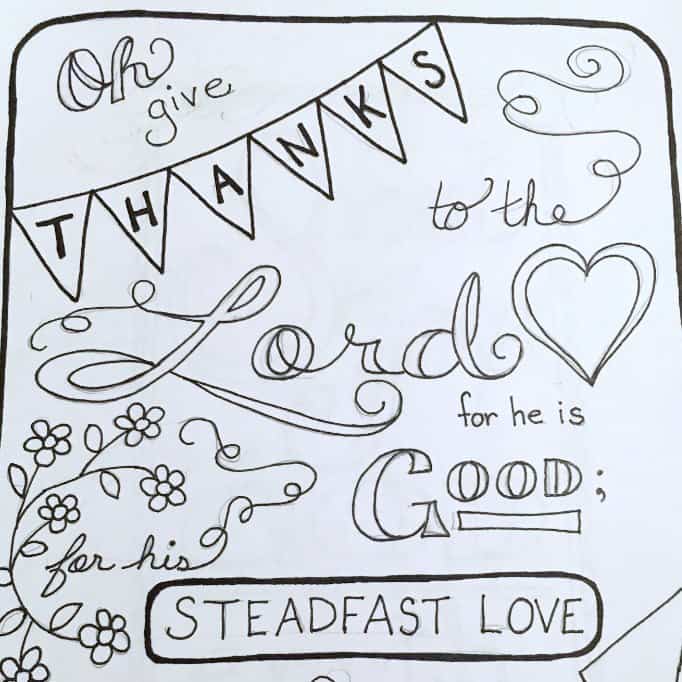 Oh
give
THANKS
to the
Lord
for he is
GOOD;
for his
STEADFAST LOVE